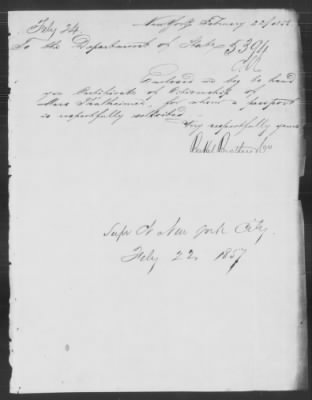 New York February 22/185
Feby 24
To the Department of State 5394
Enclosed we beg to hand
you Certificate of Citizenship of
for whom a passport
is respectfully solicited
Very respectfully yours

Supr Ct New York City
Feby 22. 1857